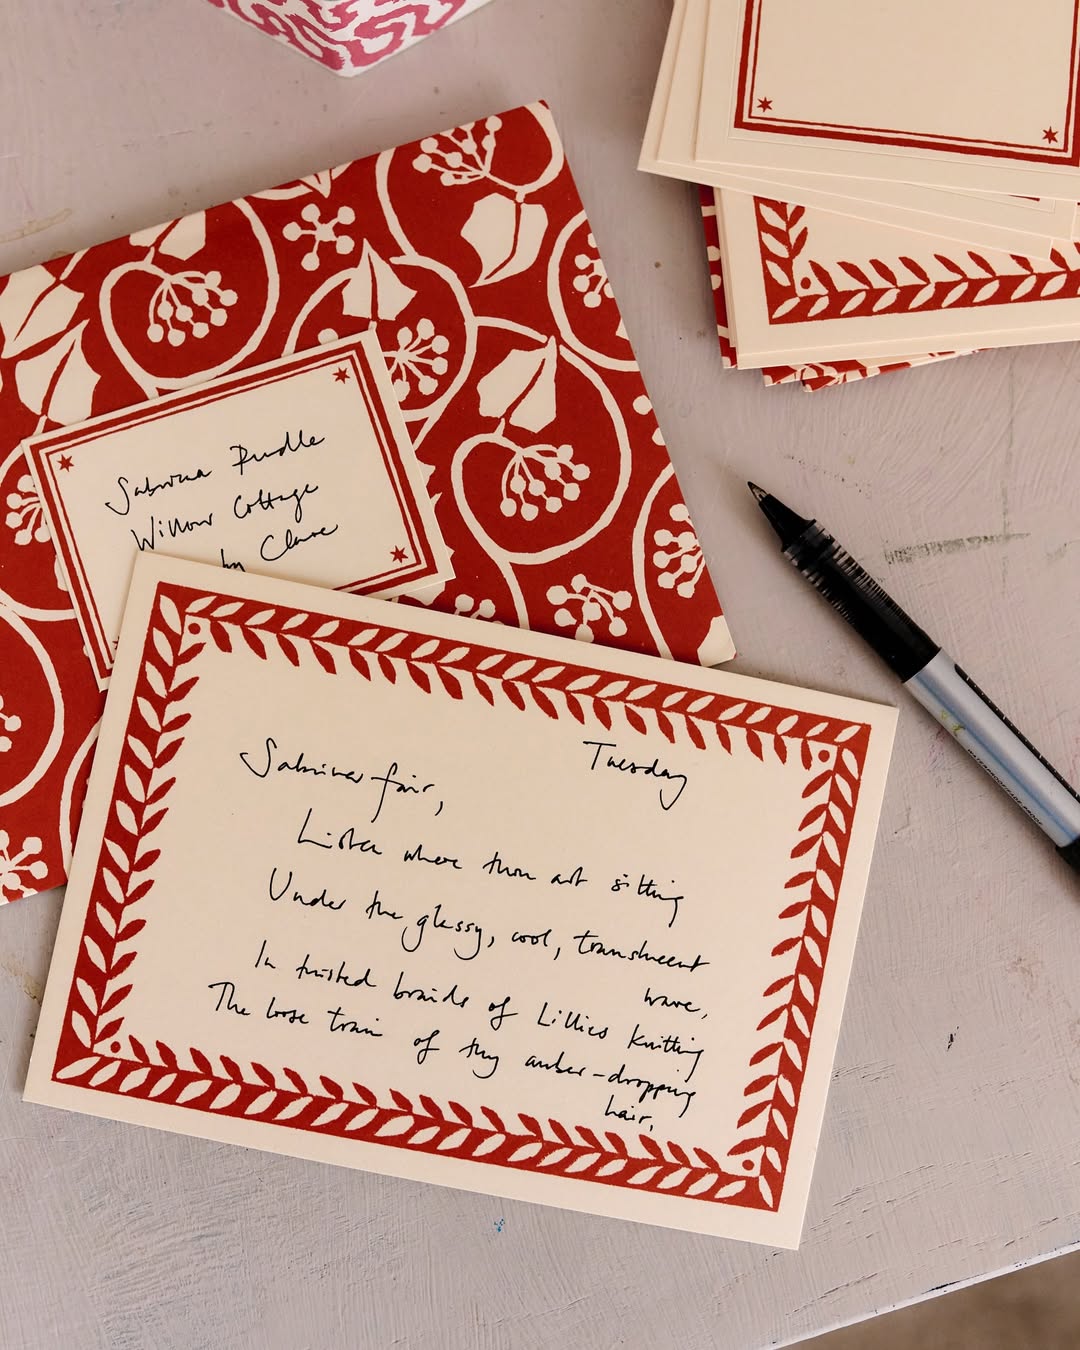 Sabrina Rudle
Willow Cottage
by Clare
Tuesday
Sabrina fair,
Listen where thou art sitting
Under the glassy, cool, translucent
wave,
In twisted braids of Lillies knitting
The loose train of thy amber-dropping
hair,